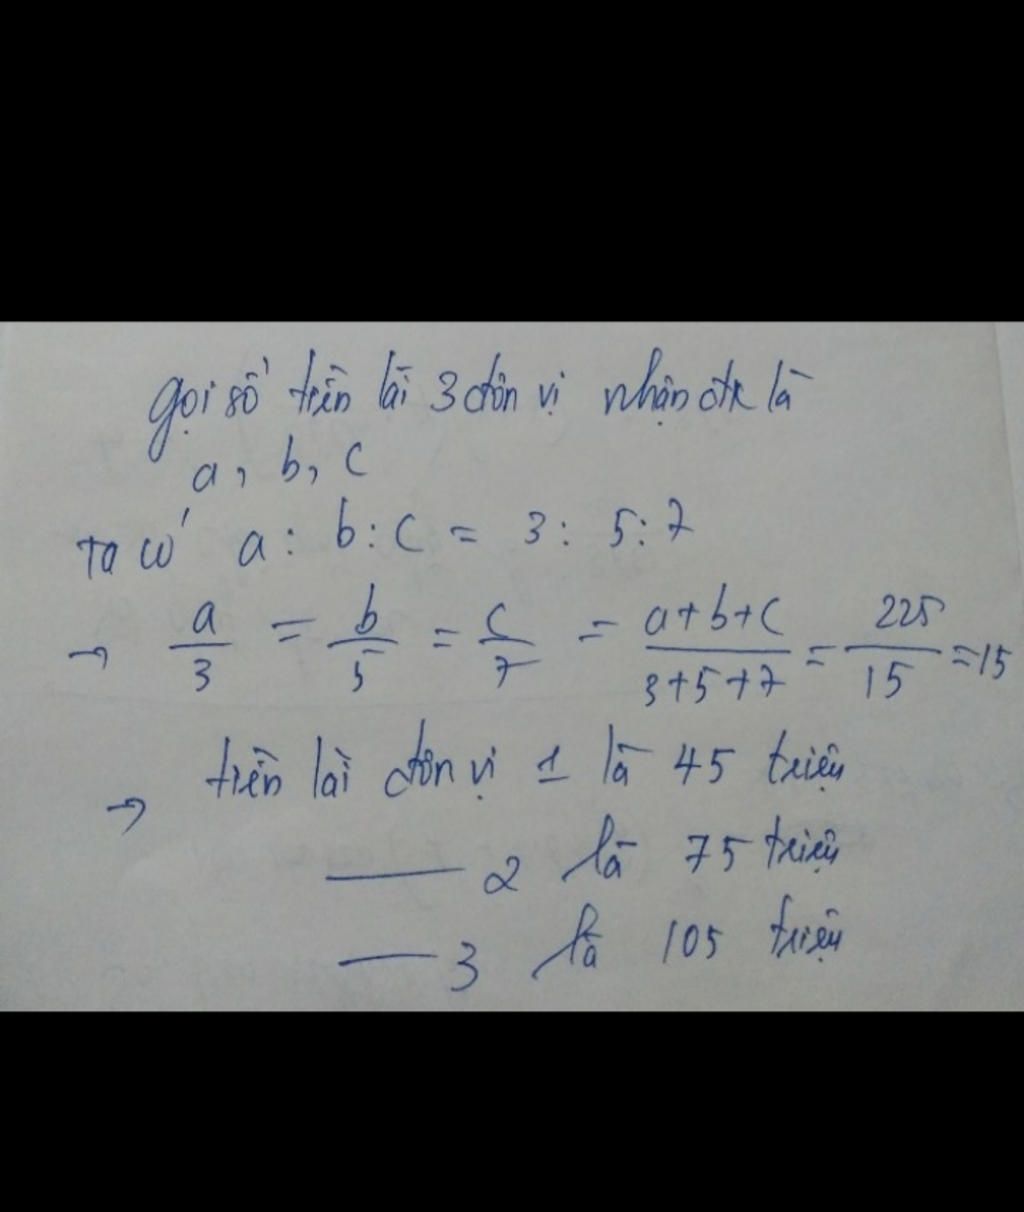 gọi số tiền lãi 3 đơn vị nhận đk là
a, b, c
Ta có a : b : c = 3 : 5 : 7
→ a/3 = b/5 = c/7 = (a+b+c)/(3+5+7) = 225/15 = 15
→ tiền lãi đơn vị 1 là 45 triệu
—— 2 là 75 triệu
—— 3 là 105 triệu